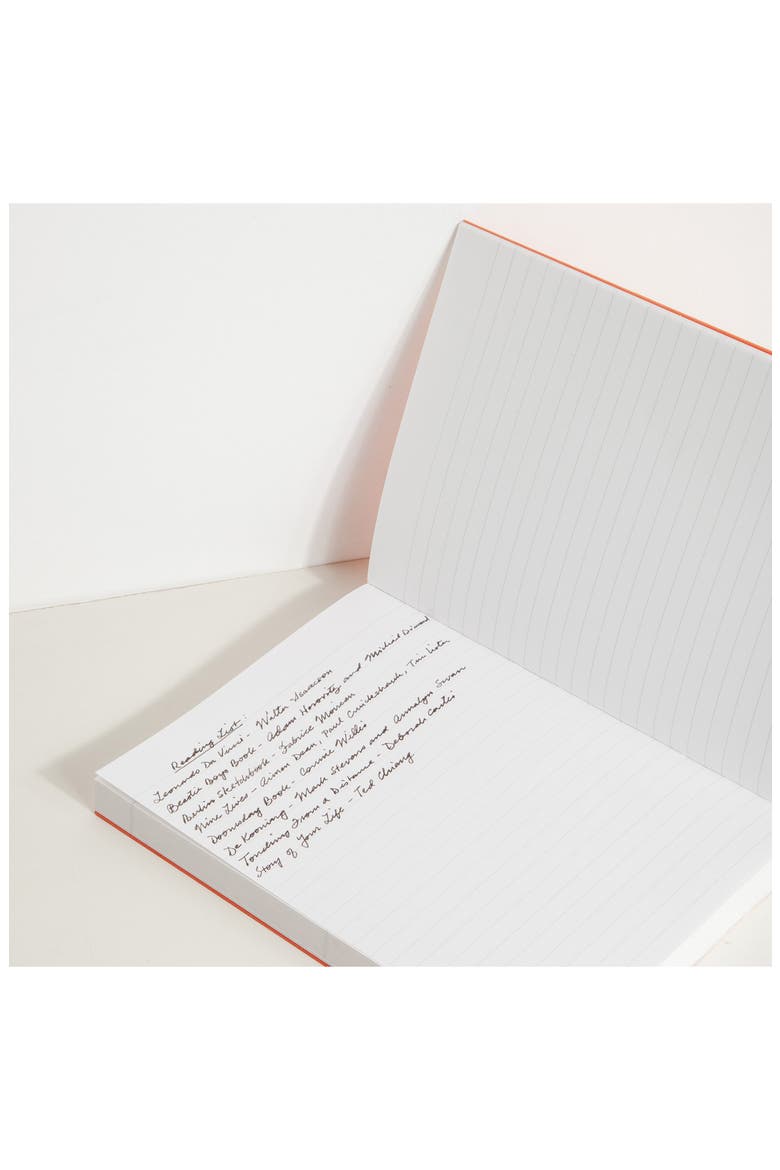 Reading List:
Leonardo Da Vinci - Walter Isaacson
Beastie Boys Book - Adam Horovitz and Michael Diamond
Berlin Sketchbook - Fabrice Moireau
Nine Lives - Aimen Dean, Paul Cruickshank, Tim Lister
Doomsday Book - Connie Willis
De Kooning - Mark Stevens and Annalyn Swan
Touching From a Distance - Deborah Curtis
Story of Your Life - Ted Chiang